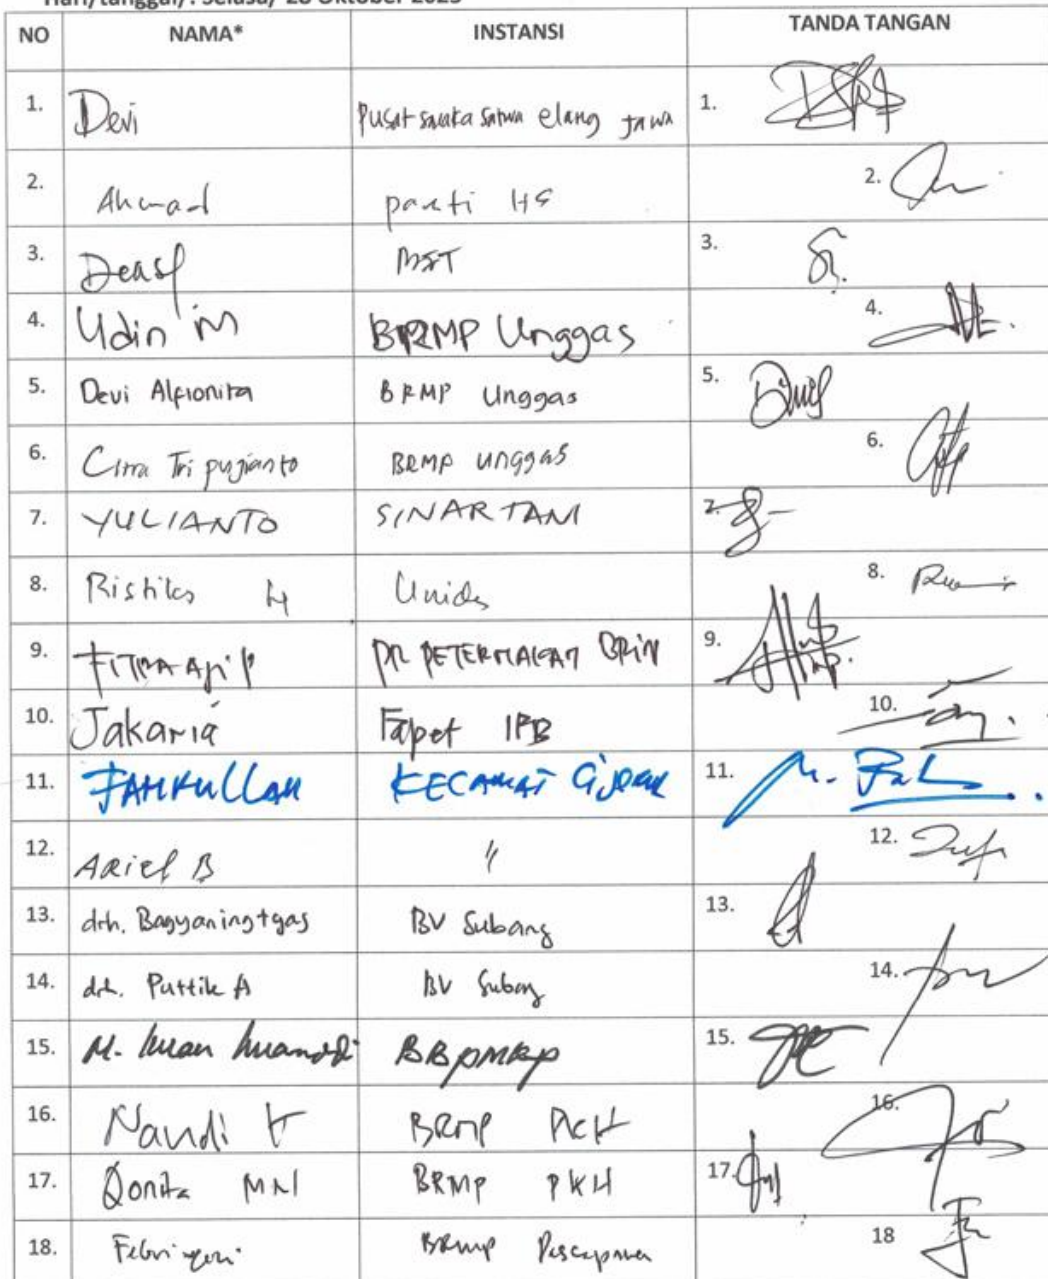 Hari/tanggal/: Selasa/ 28 Oktober 2025
NO NAMA* INSTANSI TANDA TANGAN
1. Devi Pusat suaka satwa elang Jawa 1.
2. Ahmad panti 2.
3. 3.
4. Udin M BRMP Unggas 4.
5. Devi Alfionita BRMP Unggas 5.
6. Citra Tri pujianto BRMP unggas 6.
7. YULIANTO SINAR TANI 7.
8. H Unida 8.
9. FITRA AJI P PR PETERNAKAN BRIN 9.
10. Jakaria Fapet IPB 10.
11. 11.
12. ARiel B 〃 12.
13. drh. Bagyaningtyas BV Subang 13.
14. drh. Puttik A BV Subang 14.
15. M. 15.
16. Nandi BRMP PKH 16.
17. Qonita MN BRMP PKH 17.
18. BRMP Pascapanen 18